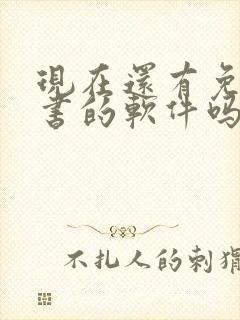 現在還有免
書的軟件嗎
不扎人的刺猬